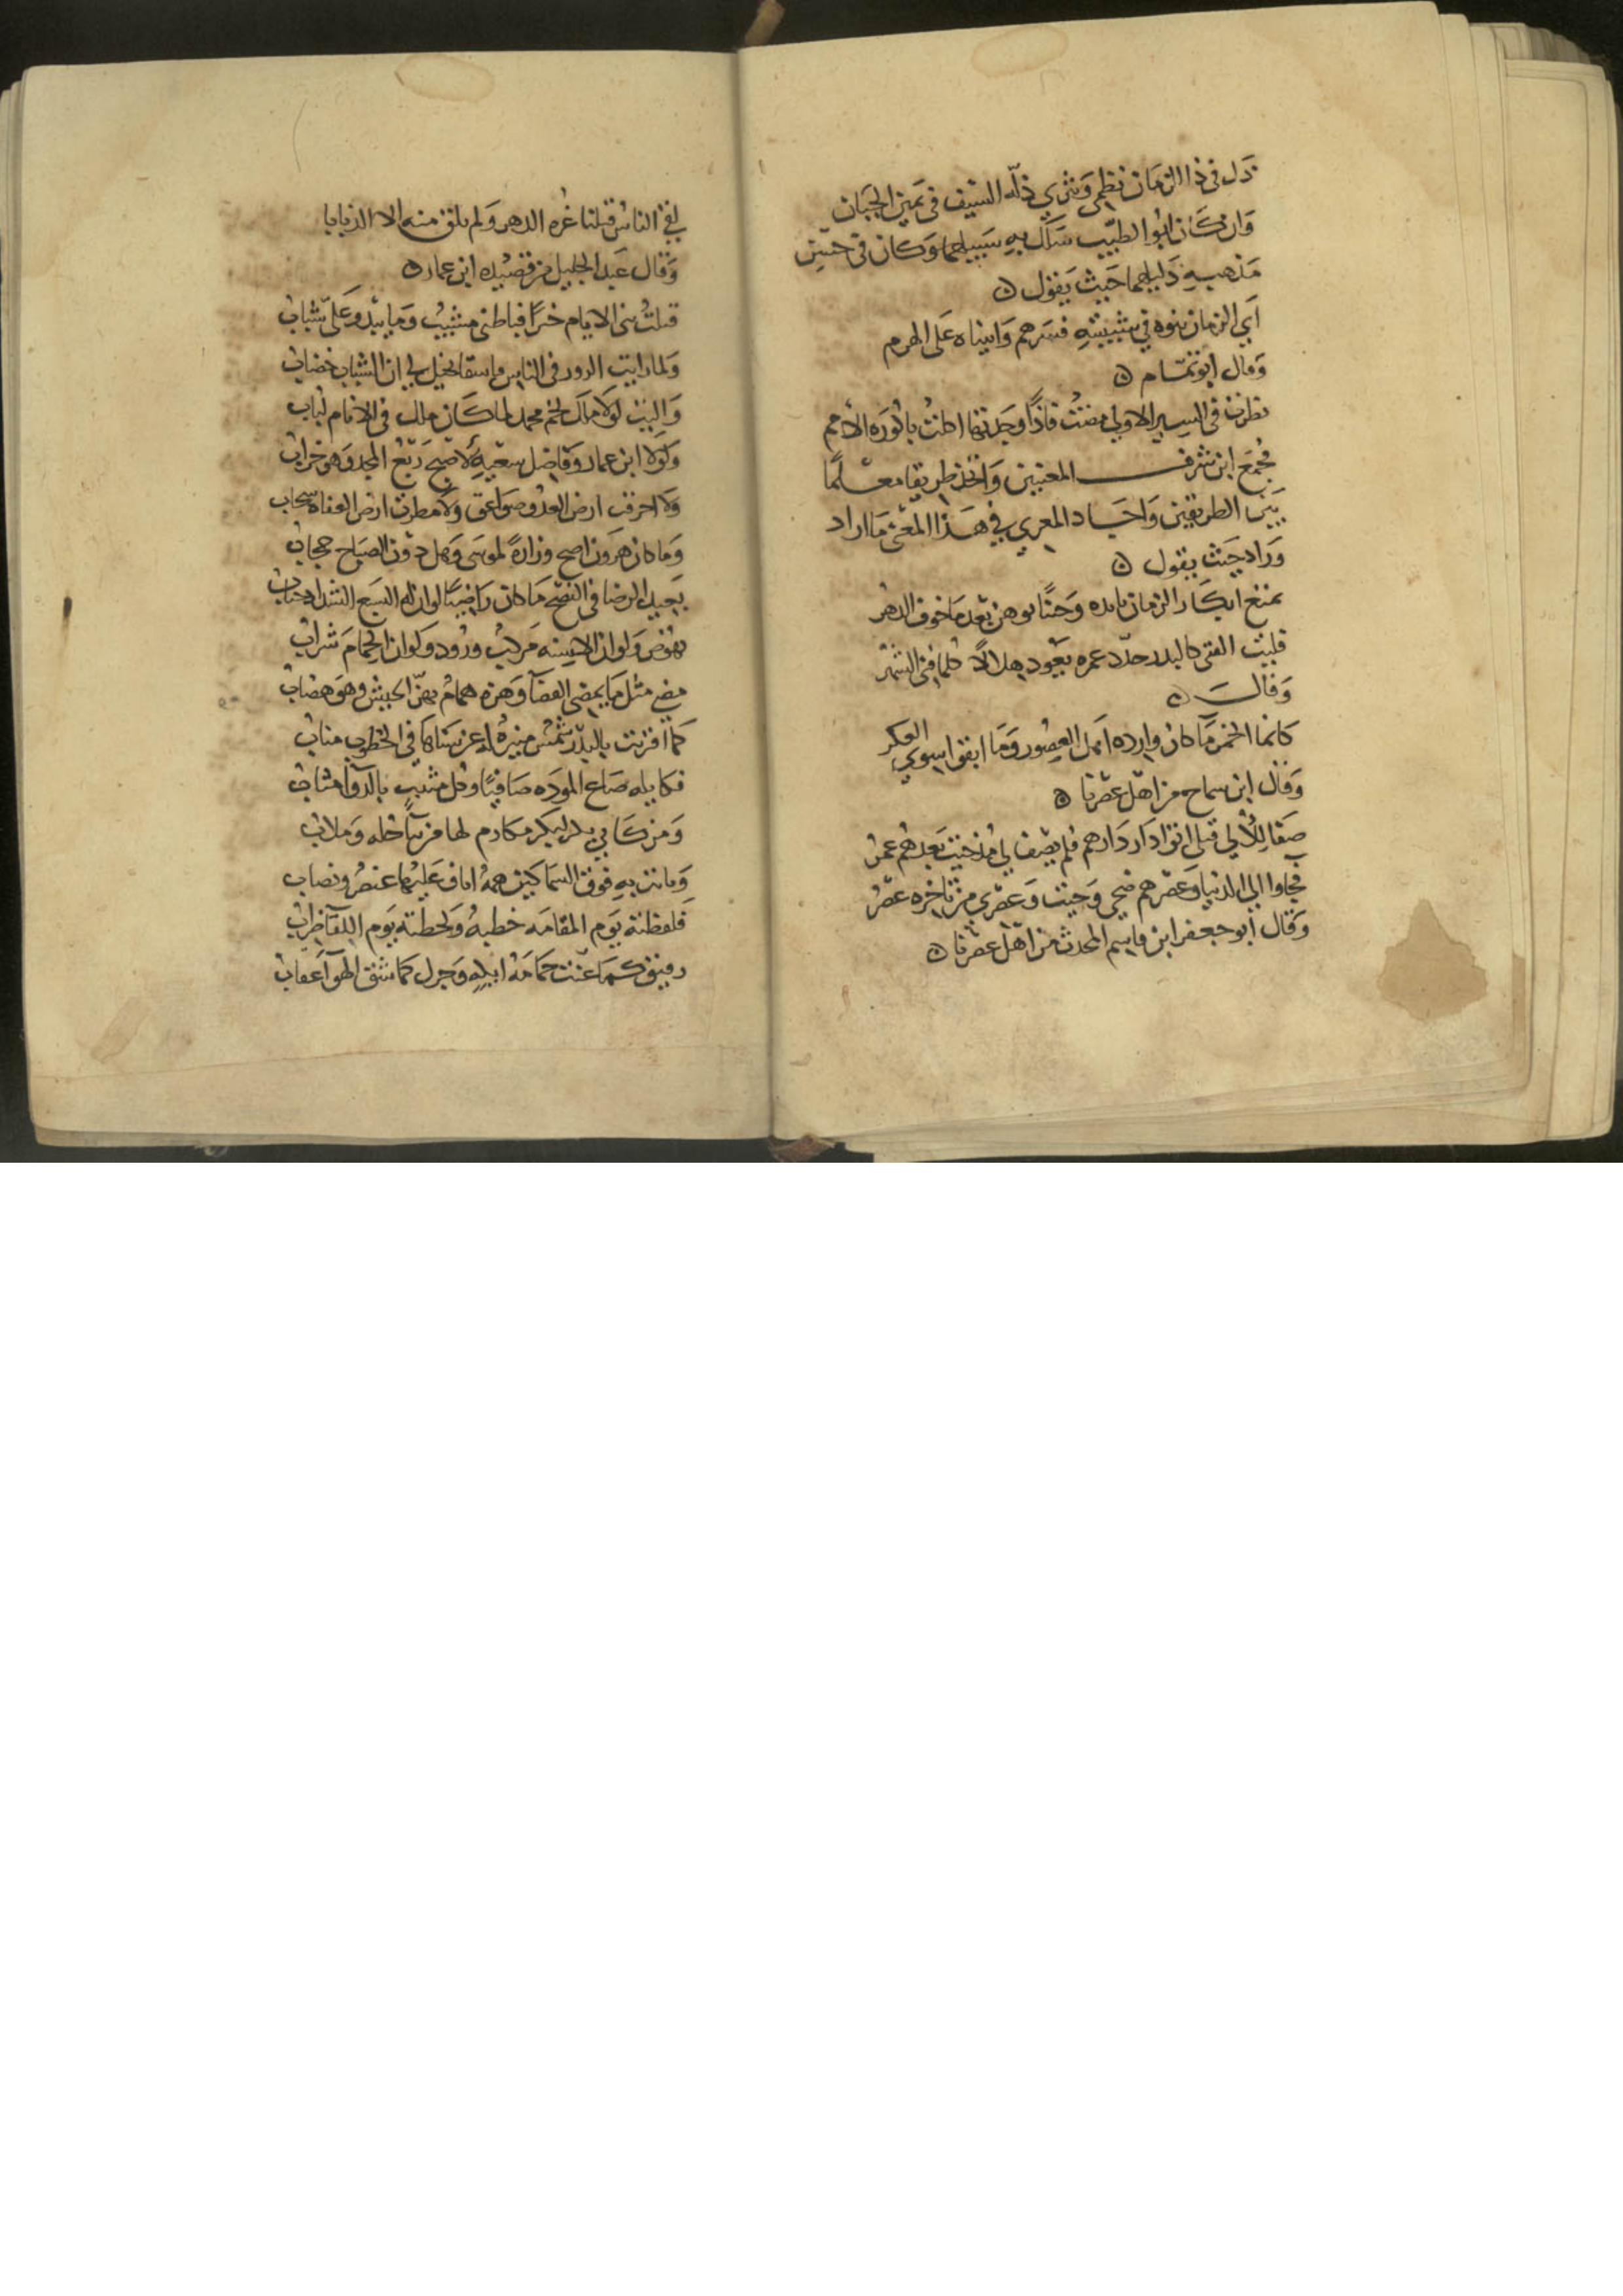 ذل في ذا الزمان نظمي ونثري ذلة السيف في يمين الجبان
وان كان ابوا لطيب سلك به سبيلهما وكان في حسن
مذهبه دليلهما حيث يقول
اتي الزمان بنوه في شبيبته فسرهم واتيناه على الهرم
وقال ابو تمام
نظرت في السير الاولي مضت فاذا وجدتها اكلت باكورة الامم
فجمع ابن شرف المعنيين واتخذ طريقا معلما
بين الطريقين واجاد المعري في هذا المعنى ما اراد
وزاد حيث يقول
تمتع ابكار الزمان بايده وجئنا بوهن بعد ما خرف الدهر
فليت الفتى كالبدر جدد عمره يعود هلالا كلما فني الشهر
وقال
كانما الخمر ما كان وارده اهل العصور وما ابقوا سوي العكر
وقال ابن سماح من اهل عصرنا
صفا للألي قبل اتوا دار دارهم فلم يصف لي مذ جيت بعدهم عمر
فجاوا الي الدنيا وعصرهم ضحى وجيت وعصري من تاخره عصر
وقال ابو جعفر ابن قاسم المحدث من اهل عصرنا
لقي الناس قبلنا غرة الدهر ولم نلق منه الا الذنابا
وقال عبد الجليل من قصيدة ابن عمار
ولما رايت الزور في الناس فاشيا تخيل لي ان الشباب خضاب
واليت لولا ملك لخم محمد لما كان ملك في الانام لباب
ولولا ابن عمار وفاضل سعيه لأصبح ربع المجد وهو خراب
ولا احرقت ارض العدو صواعق ولا مطرت ارض العفاة سحاب
وما كان هرون اصح وزارة لموسى وهل دون الصباح حجاب
بعيد الرضا في النصح ما كان راضيا لوان له السبع الشداد جناب
نهوض ولو ان الاسنة مركب ورود ولو ان الحمام شراب
مضى مثل ما يمضي القضا وهزه همام يهز الجيش وهو هضاب
كما اقترنت بالبدر شمس منيرة له عن سناها في الخطوب مناب
فكايله صاع المودة صافيا وكل مثيب بالدوا مثاب
ومن كابي بكر لبكر مكارم لها من تناخله وملاب
ومانت به فوق السماكين همة اناف عليهما عنصر ونصاب
فلفظته يوم المقامة خطبة ولحظته يوم اللقا ضراب
رقيق كما غنت حمامة ايكة وجزل كما شق الهوا عقاب